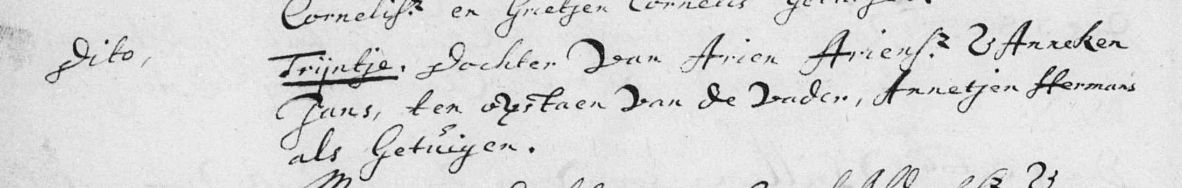 Cornelisz en Grietjen Cornelis
Dito,
Trijntje. dochter van Arien Ariensz & Anneken
Jans, ten overstaen van de vader, Annetjen Hermans
als Getuigen.